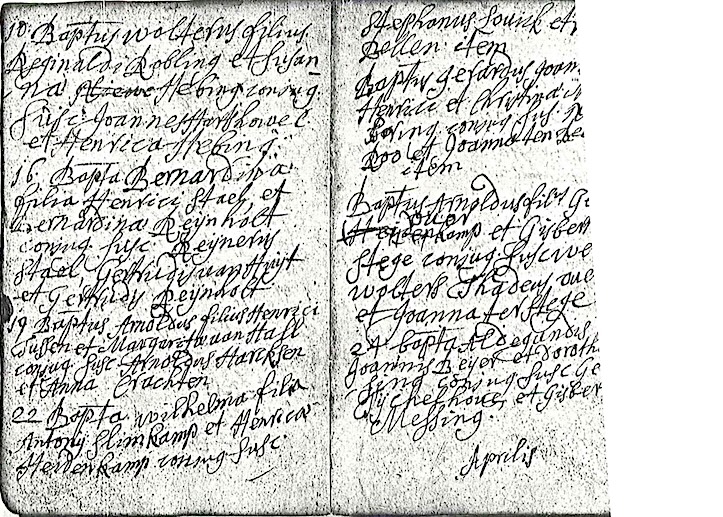 10. Baptus wolterus filius
Reginaldi Robling et Susan
na Hebing coniug.
Susc: Joannes Horkhovel
et Henrica Hebing
16. Bapta Bernardina
filia Henrici Stael et
Bernardina Reijnholt
coniug. susc. Reijnerus
Stael, Gertrudis van Huijt
et Gertrudis Reijnholt
19 Baptus Arnoldus filius Henrici
Jussen et Margareta van Hall
coniug Susc Arnoldus Harcksen
et Anna Crachten
22 Bapta wilhelma filia
Antonij Slimkamp et Henricae
Heidenkamp coniug. Susc:
Stephanus Louick et
Bellen item
Baptus Gerardus Joan
Henrici et Christina
coniug sus:
Roo et Joanna ten
item
Baptus Arnoldus filius
over
kamp et Gisber
Stege coniug Susc we
wolters Thadeus ove
et Joanna ter Stege
24 bapta Aldegundis
Joannis Beijer et Doroth
sing coniug Susc Ge
et Gisber
Messing.
Aprilis